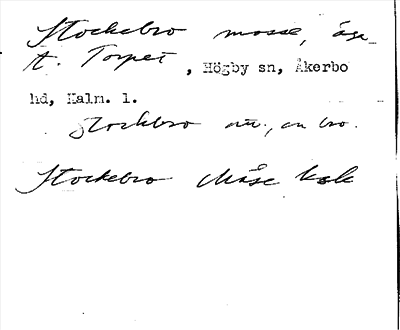 Stockebro mosse, äga
t. Torpet, Högby sn, Åkerbo
hd, Kalm. l.
Stockbro nu., en bro.
Stockebro Måse